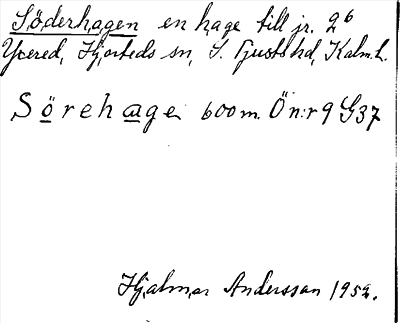 Söderhagen en hage till jr. 2⁶
Ycered, Hjorteds sn, S. Tjusts hd, Kalm.L.
Sörehage 600 m. Ö n:r 9 G37
Hjalmar Andersson 1952.